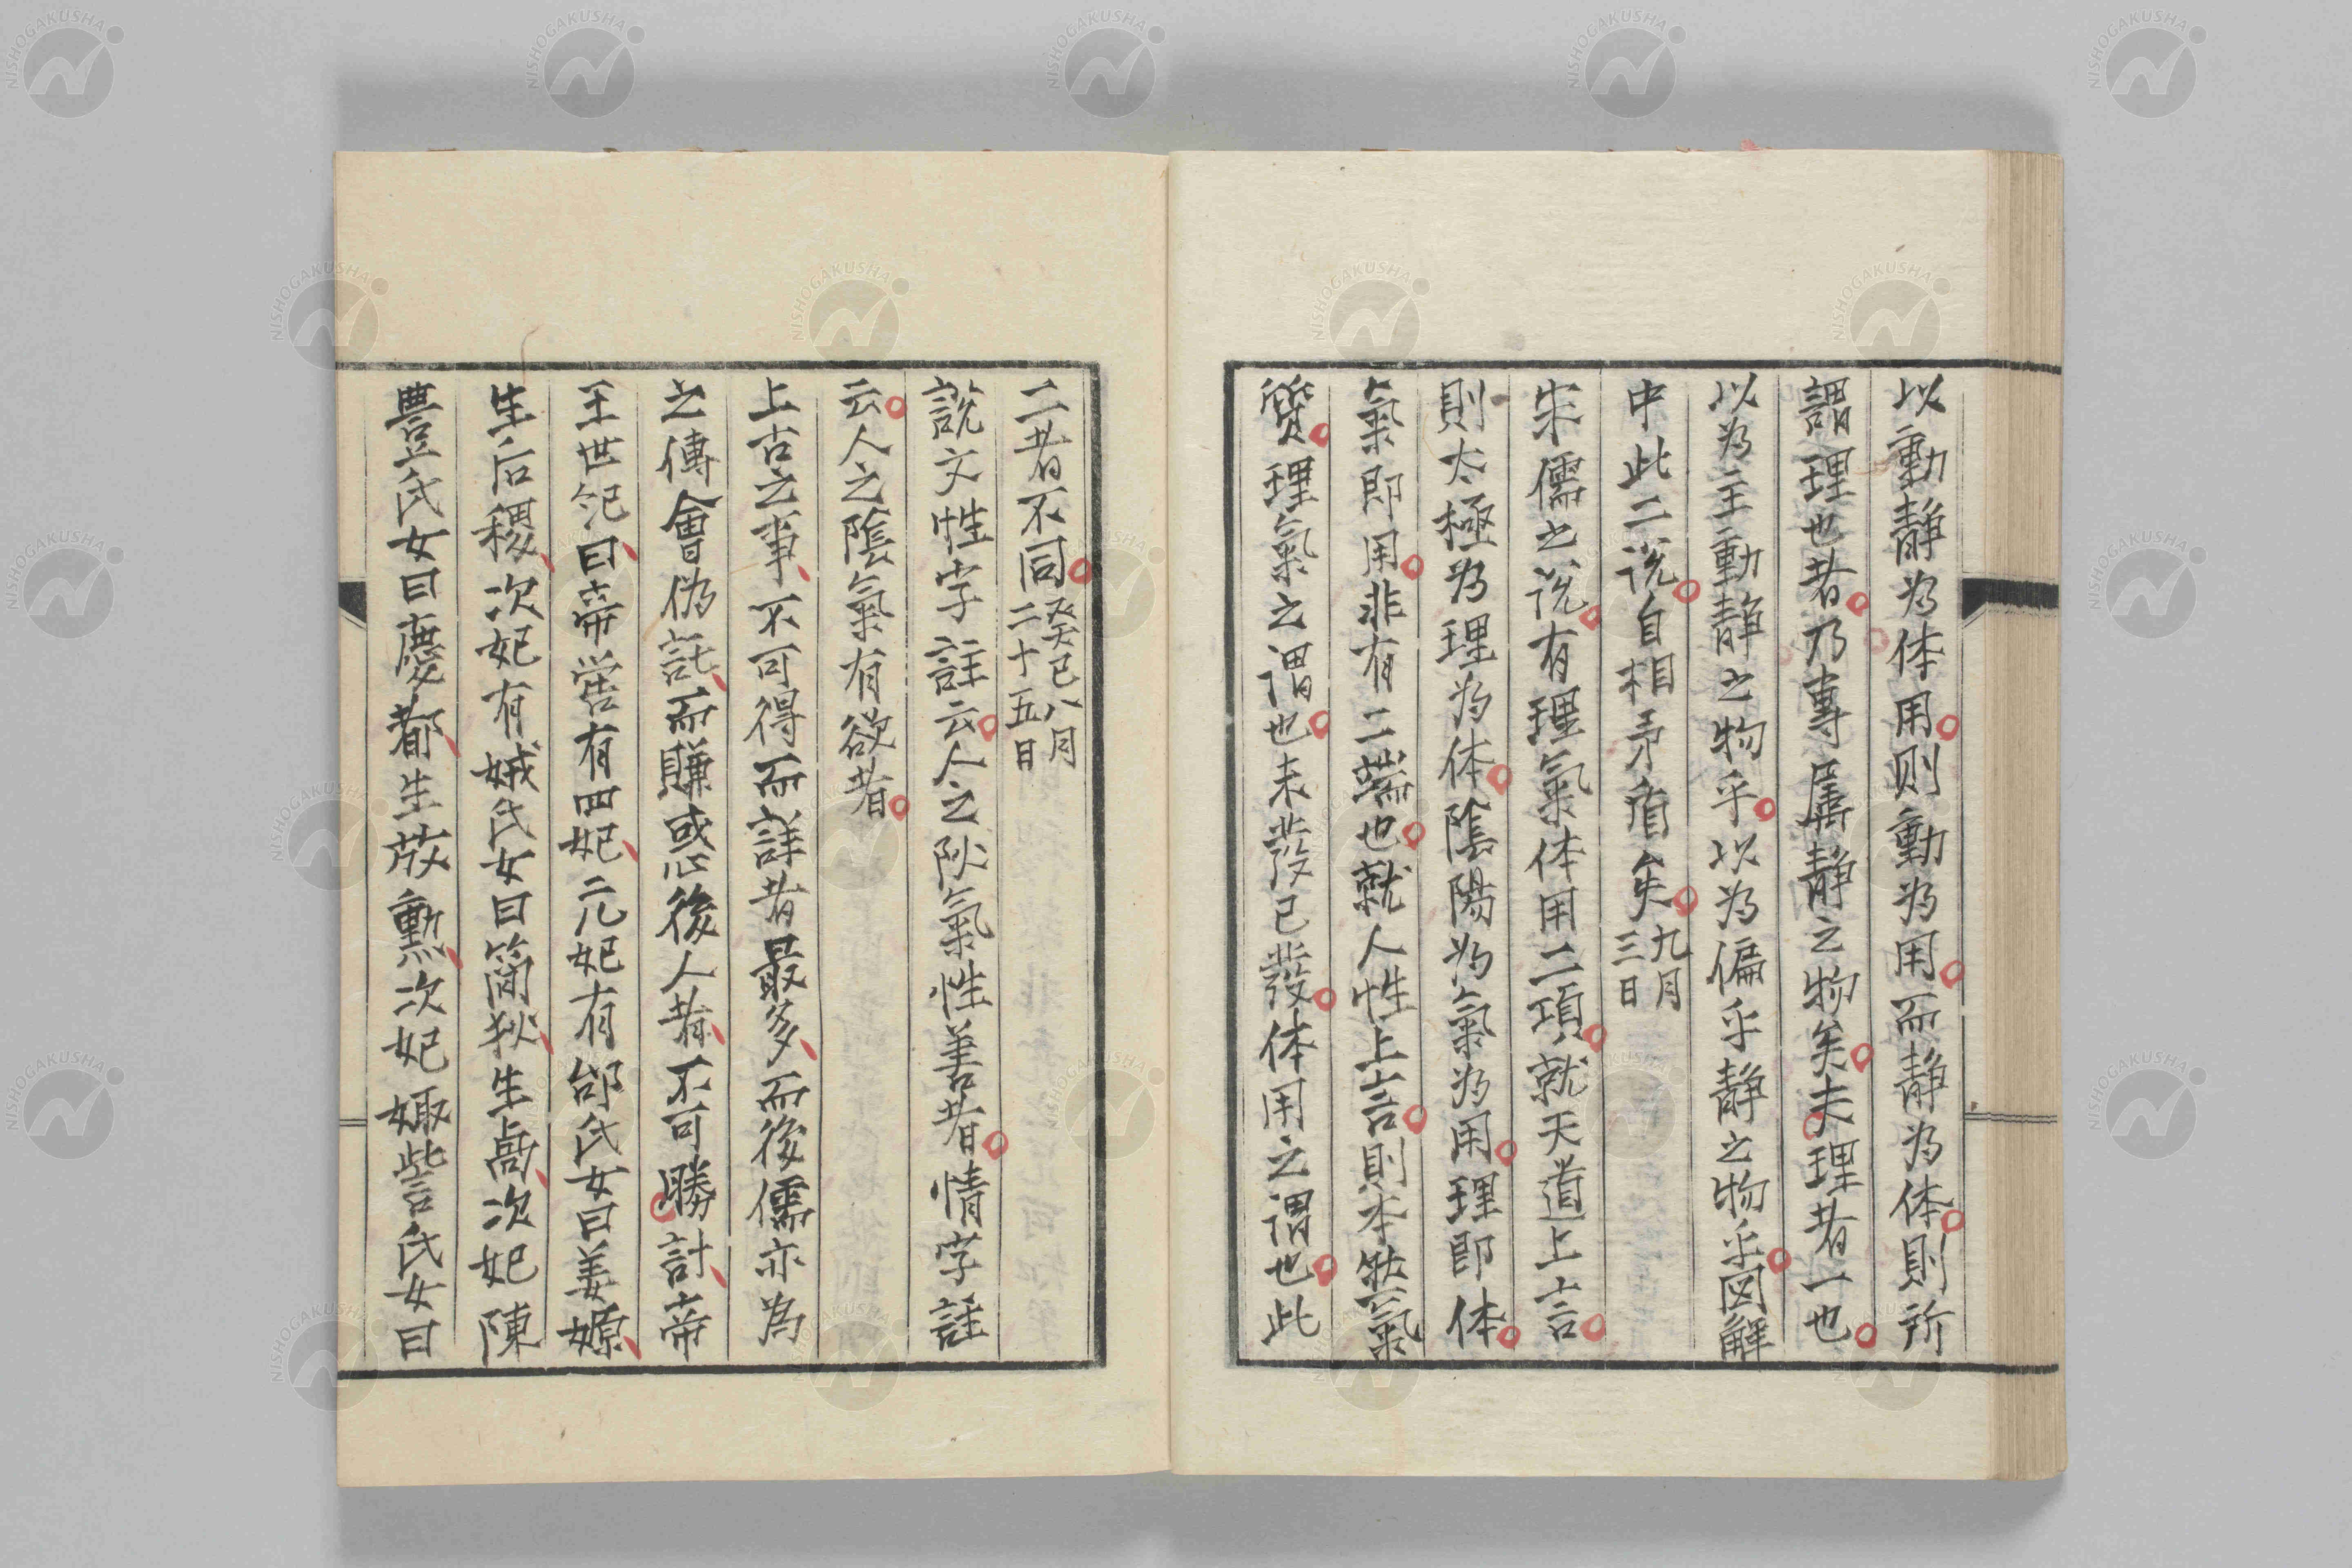 以動静為体用則動為用而静為体則所
謂理也者乃專属静之物矣夫理者一也
以為主動静之物乎以為偏乎静之物乎図解
中此二説自相矛盾矣九月
三日
宋儒之説有理氣体用二項就天道上言
則太極為理為体陰陽為氣為用理即体
氣即用非有二端也就人性上言則本然氣
質理氣之謂也未發已發体用之謂也此
二者不同癸巳八月
二十五日
説文性字註云人之阳氣性善者情字註
云人之陰氣有欲者
上古之事不可得而詳者最多而後儒亦為
之傳會偽託而賺惑後人者不可勝計帝
王世紀曰帝嚳有四妃元妃有邰氏女曰姜嫄
生后稷次妃有娀氏女曰簡狄生卨次妃陳
豊氏女曰慶都生放勲次妃娵訾氏女曰
NISHOGAKUSHA